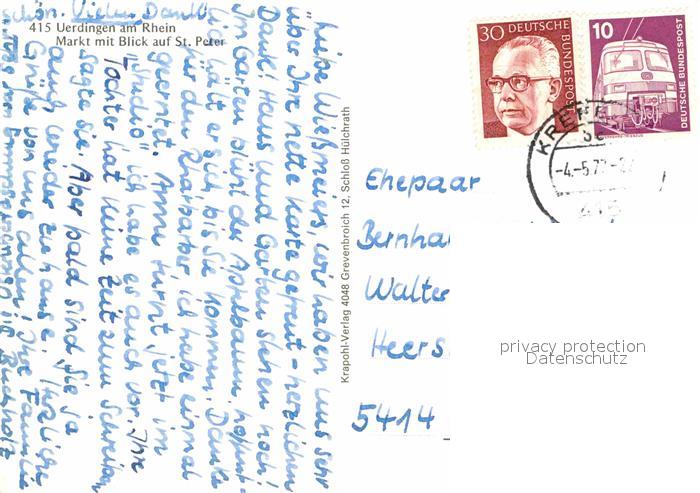 415 Uerdingen am Rhein
Markt mit Blick auf St. Peter
Liebe Wißmeiers wir haben uns sehr
über Ihre nette Karte gefreut - herzlichen
Dank! Haus und Garten stehen noch!
Im Garten blüht der Apfelbaum, hoffent-
lich hält er sich bis Sie kommen. Danke
für den Rharbaber ich habe einmal
geerntet. Anne turnt jetzt im
ich habe es auch vor. Ihre
Tochter hat keine Zeit zum Schreiben
sagte sie. Aber bald sind Sie ja
auch wieder zuhause. Herzliche
Grüße von uns allen! Ihre Familie
schön. Vielen Dank!
Krapohl-Verlag 4048 Grevenbroich 12, Schloß Hülchrath
30 DEUTSCHE BUNDESPOST
10 DEUTSCHE BUNDESPOST
KREFE
-4.-5.7
415
Ehepaar
Bernha
Walte
Heers
5414
privacy protection
Datenschutz